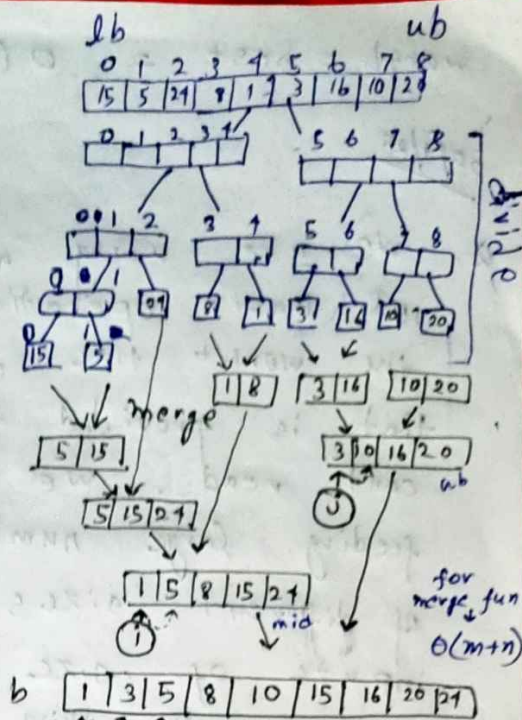 lb ub
0 1 2 3 4 5 6 7 8
15 5 24 8 1 3 16 10 20
0 1 2 3 4 5 6 7 8
divide
0 1 2 3 4 5 6 7 8
0 1 24 8 1 3 16 10 20
0
15 5
1 8 3 16 10 20
merge
5 15 3 10 16 20
ub
j
5 15 24
1 5 8 15 24
mid
i
for
merge fun
θ(m+n)
b 1 3 5 8 10 15 16 20 24